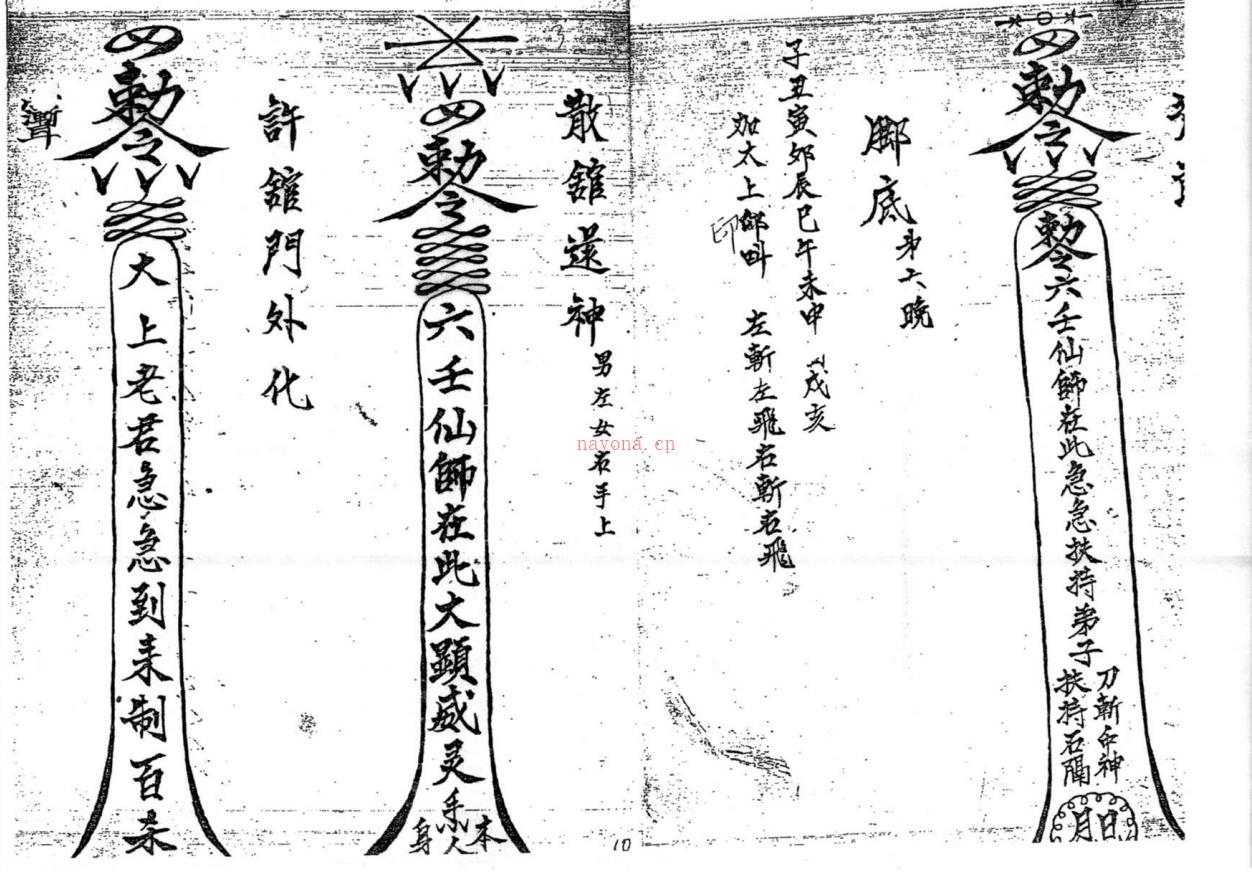 勅令
勅令六壬仙師在此急急扶持弟子
刀斬 神
扶持石隔
日月
脚底 弟六晚
子丑寅卯辰巳午未申 戌亥
加太上 左斬左飛右斬右飛
印
散舘送神 男左女右手上
勅令
六壬仙師在此大顯威灵
本人身
許舘門外化
勅令
大上老君急急到来制百杀
nayona.cn
10